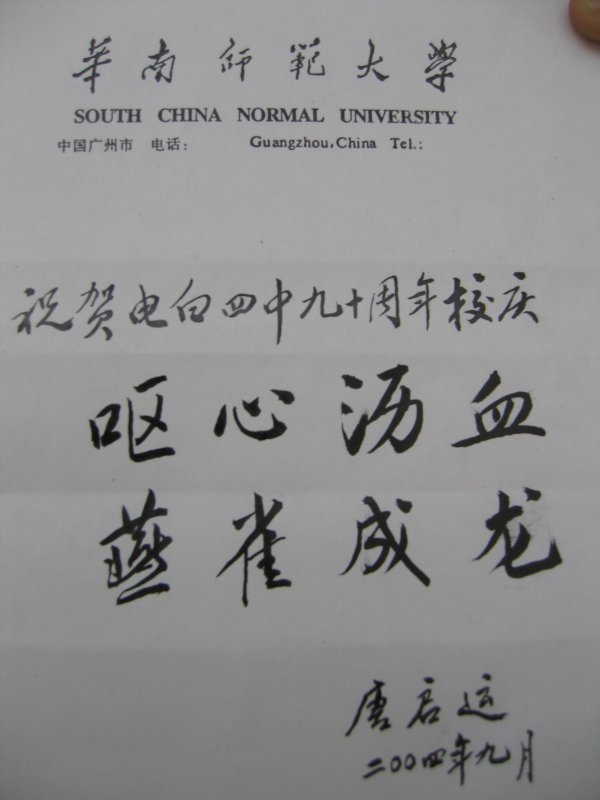 華南師範大學
SOUTH CHINA NORMAL UNIVERSITY
中国广州市 电话: Guangzhou,China Tel.:
祝贺电白四中九十周年校庆
呕心沥血
燕雀成龙
唐启运
二〇〇四年九月